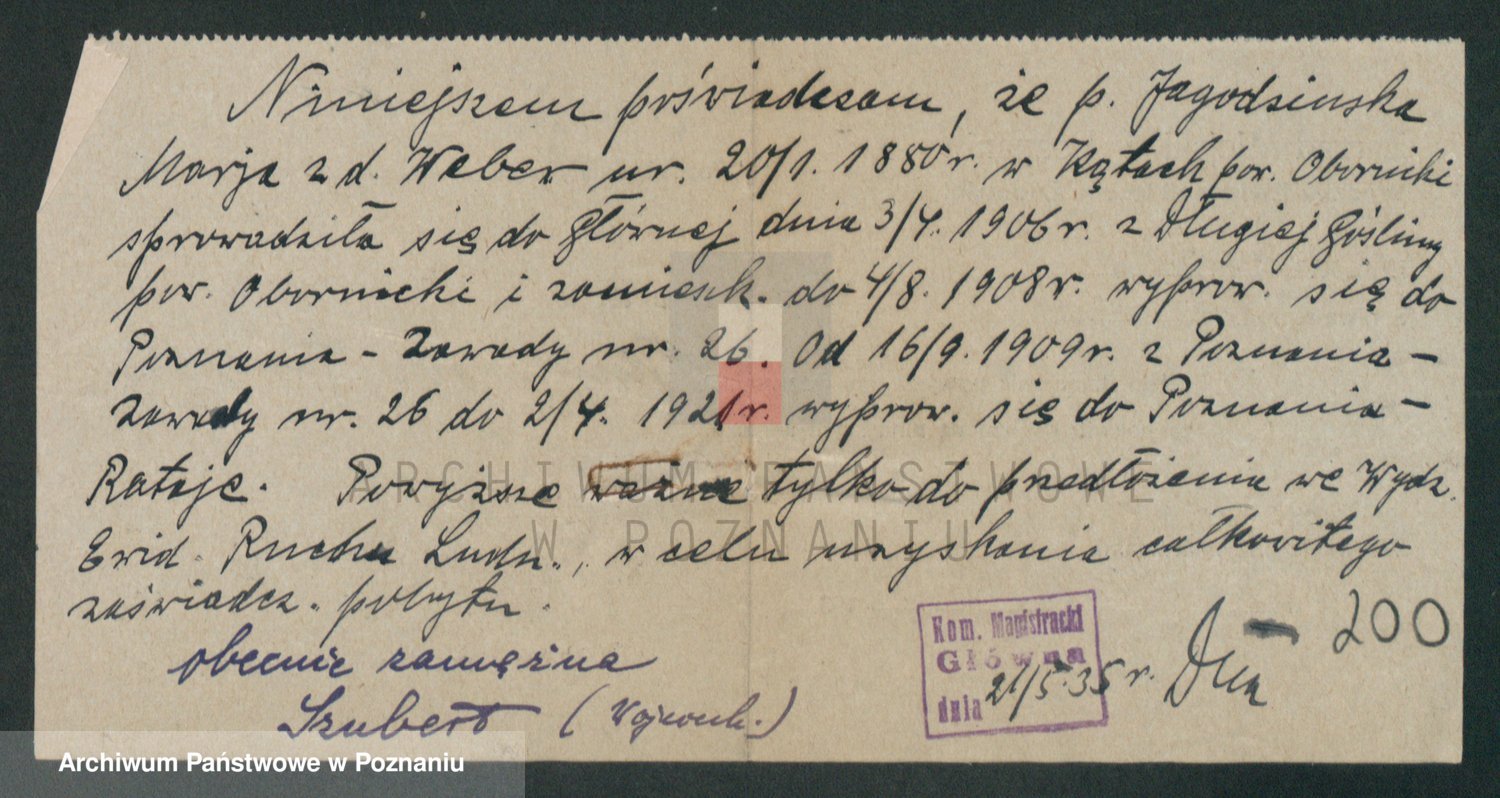 Niniejszem poświadczam, że p. Jagodzinska
Marja z d. Weber ur. 20/1. 1880 r. w Kątach pow. Obornicki
sprowadziła się do Głównej dnia 3/4. 1906 r. z Długiej Gośliny
pow. Obornicki i zamieszk. do 4/8. 1908 r. wyprow. się do
Poznania - Zawady nr. 26. Od 16/9. 1909 r. z Poznania -
Zawady nr. 26 do 2/4. 1921 r. wyprow. się do Poznania -
Rataje. Powyższe ważne tylko do przedłożenia we Wydz.
Ewid. Ruchu Ludn., w celu uzyskania całkowitego
zaświadcz. pobytu.
obecnie zamężna
Szubert
Kom. Magistracki
Główna
dnia 21/5. 35 r.
- 200
ARCHIWUM PAŃSTWOWE
W POZNANIU
Archiwum Państwowe w Poznaniu